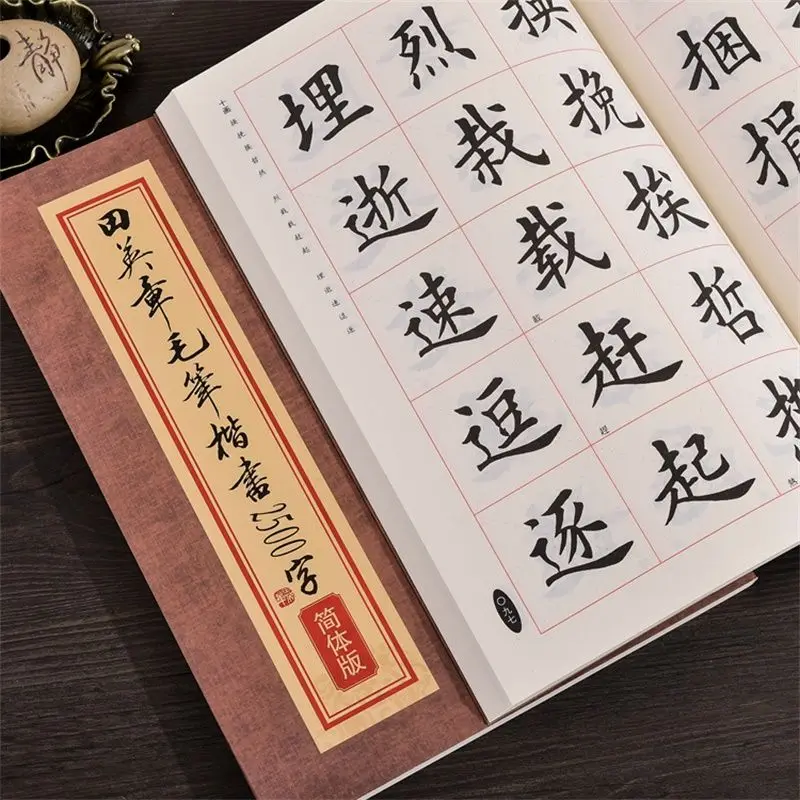 靜
田英章毛筆楷書2500字
简体版
捆捐
换挽挨哲热
熱
烈栽载赶起
載
趕
埋逝速逗逐
十画 换挽挨哲热 烈栽载赶起 埋逝速逗逐
〇九七